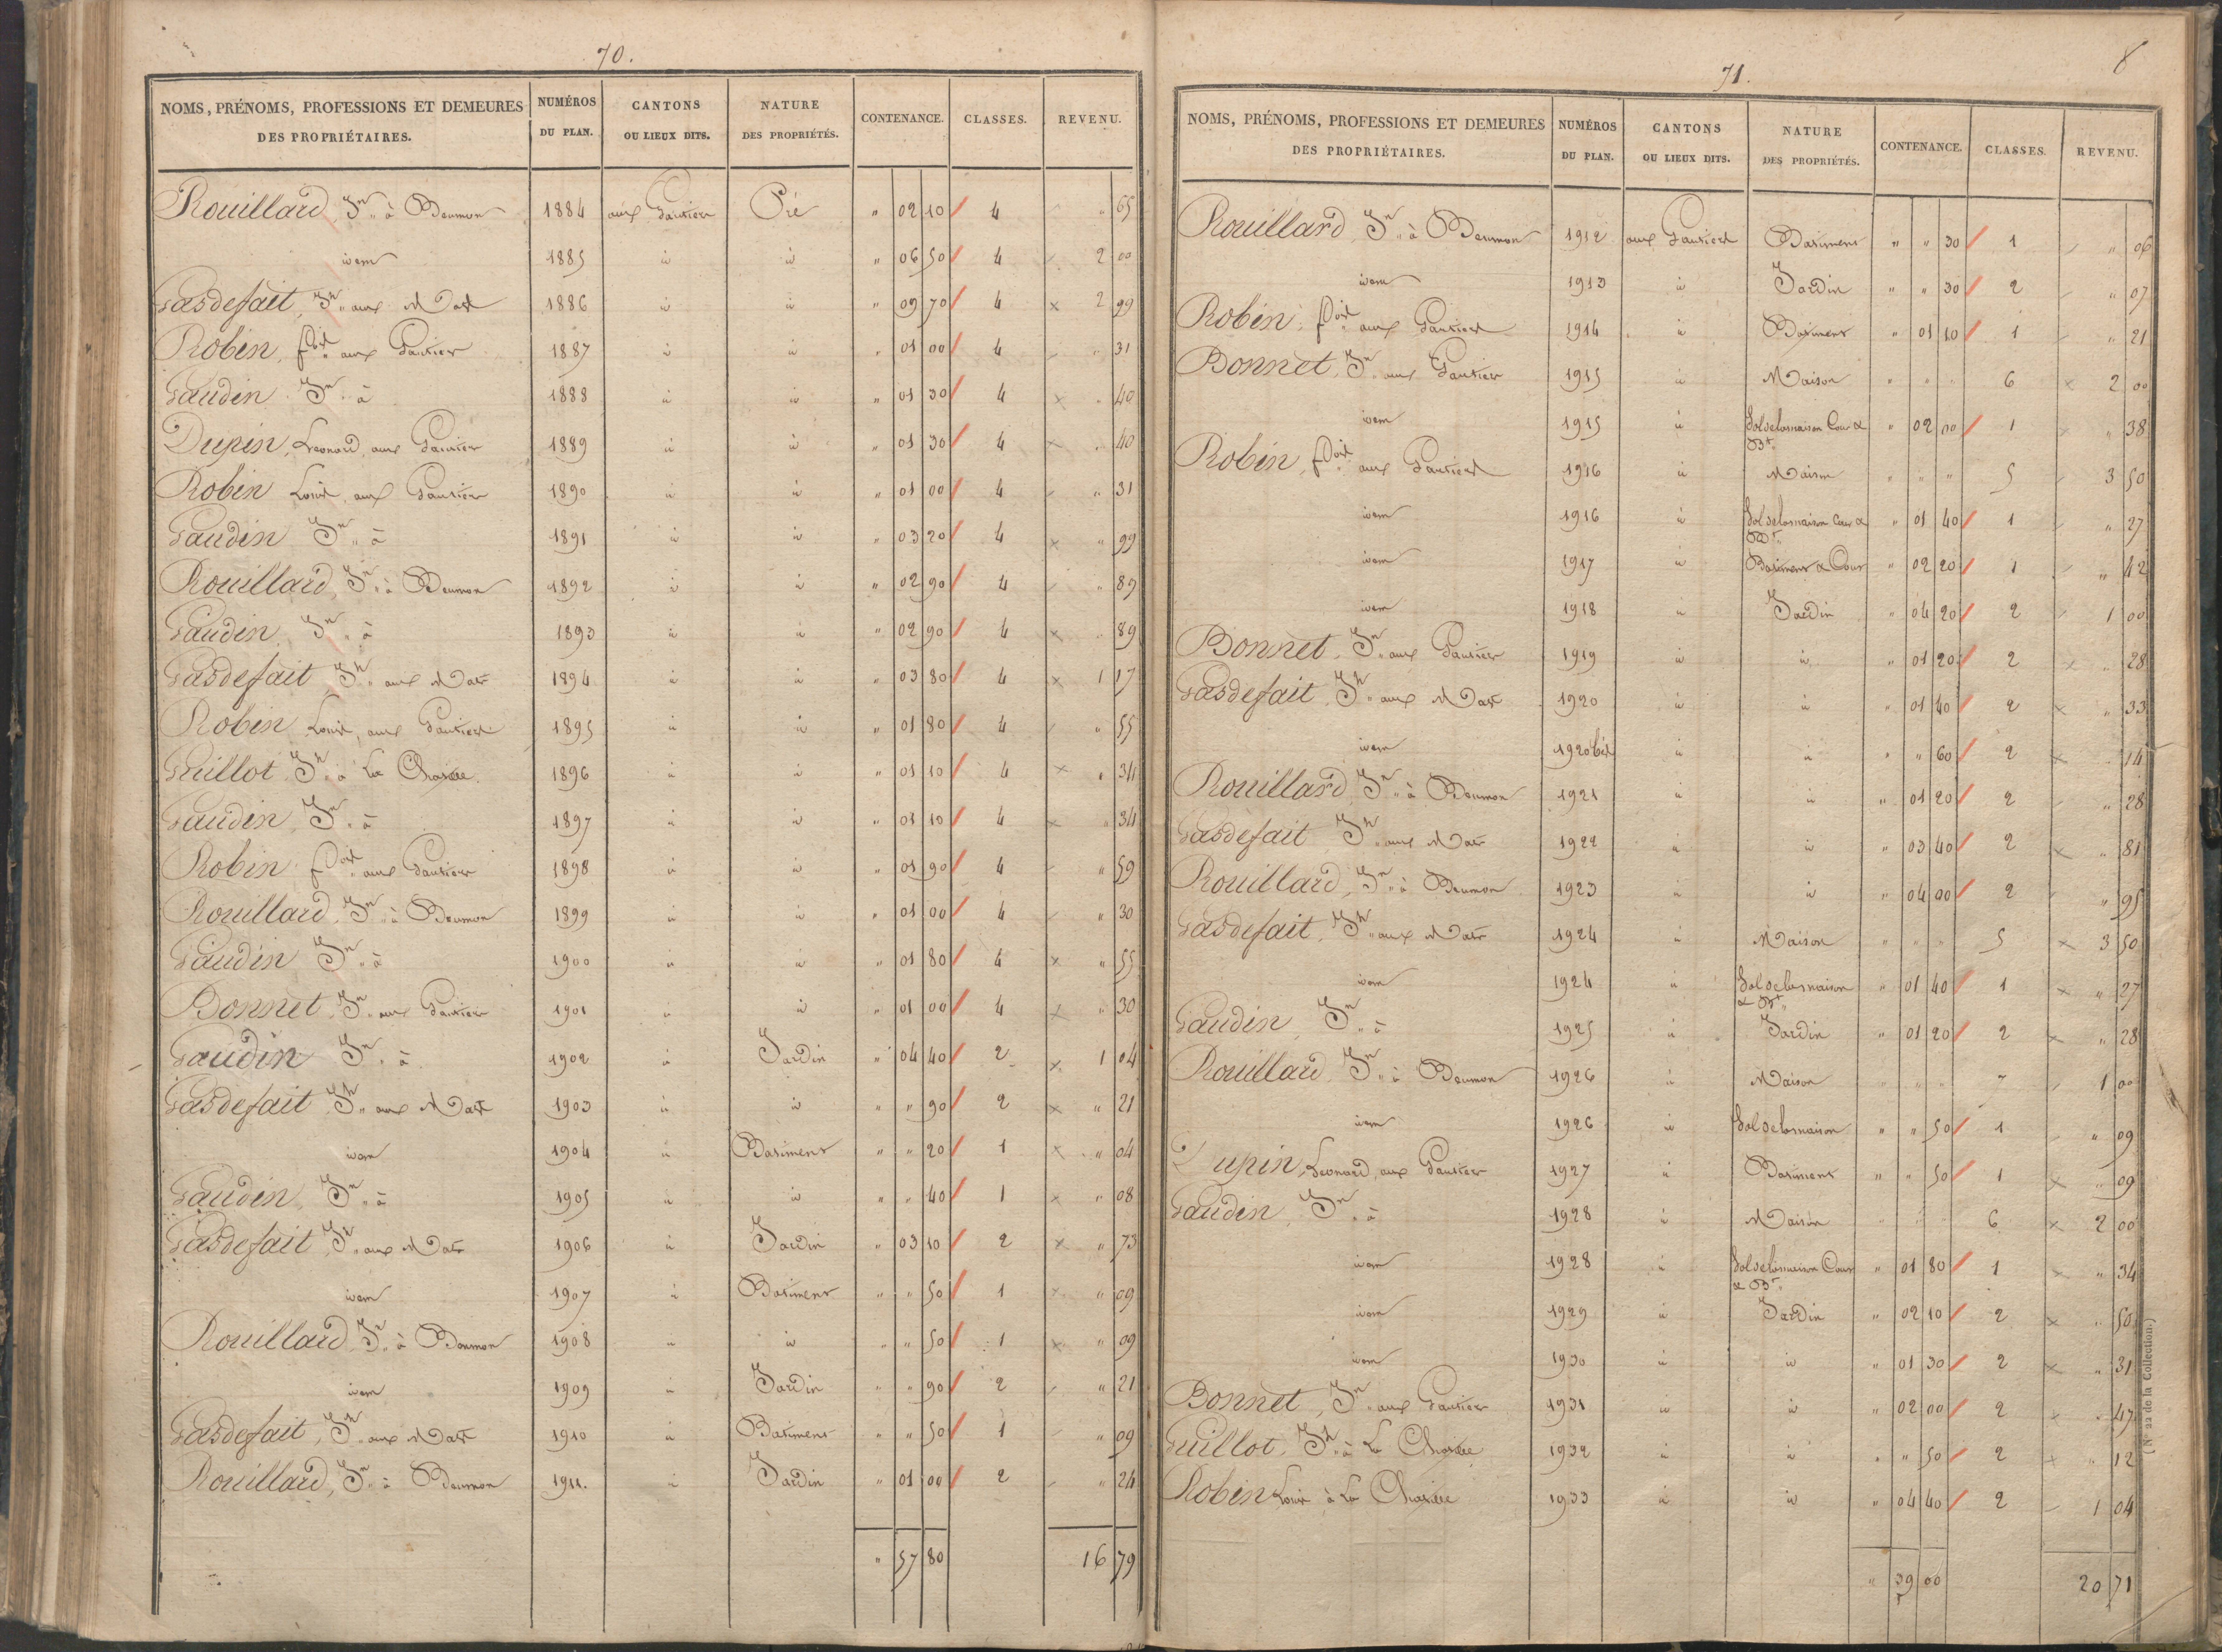 70.
NOMS, PRÉNOMS, PROFESSIONS ET DEMEURES DES PROPRIÉTAIRES. NUMÉROS DU PLAN. CANTONS OU LIEUX DITS. NATURE DES PROPRIÉTÉS. CONTENANCE. CLASSES. REVENU.
Rouillard, Jn à Beumon 1884 aux Gautier Pré " 02 10 4 " 65
idem 1885 id id " 06 50 4 2 00
Gasdefait, Jh aux Mats 1886 id id " 09 70 4 × 2 99
Robin, fois aux Gautier 1887 id id " 01 00 4 " 31
Gaudin Jn à 1888 id id " 01 30 4 × " 40
Dupin, Leonard, aux Gautier 1889 id id " 01 30 4 × " 40
Robin Louis, aux Gautier 1890 id id " 01 00 4 " 31
Gaudin Jn à 1891 id id " 03 20 4 × " 99
Rouillard, Jn à Beumon 1892 id id " 02 90 4 " 89
Gaudin, Jn à 1893 id id " 02 90 4 × " 89
Gasdefait Jh aux Mats 1894 id id " 03 80 4 × 1 17
Robin Louis, aux Gautiers 1895 id id " 01 80 4 " 55
Guillot, Jh à La Chassée 1896 id id " 01 10 4 × " 34
Gaudin, Jn à 1897 id id " 01 10 4 × " 34
Robin fois aux Gautier 1898 id id " 01 90 4 " 59
Rouillard, Jn à Beumon 1899 id id " 01 00 4 " 30
Gaudin Jn à 1900 id id " 01 80 4 × " 55
Bonnet, Jn aux Gautier 1901 id id " 01 00 4 × " 30
Gaudin Jn à 1902 id Jardin " 04 40 2 × 1 04
Gasdefait, Jh aux Mats 1903 id id " " 90 2 × " 21
idem 1904 id Batiment " " 20 1 × " 04
Gaudin, Jn à 1905 id id " " 40 1 × " 08
Gasdefait, Jh aux Mats 1906 id Jardin " 03 10 2 × " 73
idem 1907 id Batiment " " 50 1 × " 09
Rouillard, Jn à Beumon 1908 id id " " 50 1 × " 09
idem 1909 id Jardin " " 90 2 " 21
Gasdefait, Jh aux Mats 1910 id Batiment " " 50 1 " 09
Rouillard, Jn à Beumon 1911. id Jardin " 01 00 2 " 24
" 57 80 16 79
71.
8
NOMS, PRÉNOMS, PROFESSIONS ET DEMEURES DES PROPRIÉTAIRES. NUMÉROS DU PLAN. CANTONS OU LIEUX DITS. NATURE DES PROPRIÉTÉS. CONTENANCE. CLASSES. REVENU.
Rouillard, Jn à Beumon 1912 aux Gautiers Batiment " " 30 1 " 06
idem 1913 id Jardin " " 30 2 " 07
Robin, fois aux Gautiers 1914 id Batiment " 01 10 1 " 21
Bonnet, Jn aux Gautier 1915 id Maison " " " 6 × 2 00
idem 1915 id Sol de la maison Cour & Bt. " 02 00 1 × " 38
Robin, fois aux Gautiers 1916 id Maison " " " 5 3 50
idem 1916 id Sol de la maison Cour & Bt. " 01 40 1 " 27
idem 1917 id Batiment & Cour " 02 20 1 " 42
idem 1918 id Jardin " 04 20 2 1 00
Bonnet, Jn aux Gautier 1919 id id " 01 20 2 × " 28
Gasdefait, Jh aux Mats 1920 id id " 01 40 2 × " 33
idem 1920 bis id id " " 60 2 × " 14
Rouillard, Jn à Beumon 1921 id id " 01 20 2 " 28
Gasdefait Jh aux Mats 1922 id id " 03 40 2 × " 81
Rouillard, Jn à Beumon 1923 id id " 04 00 2 " 95
Gasdefait, Jh aux Mats 1924 id Maison " " " 5 × 3 50
idem 1924 id Sol de la maison & Bt. " 01 40 1 × " 27
Gaudin, Jn à 1925 id Jardin " 01 20 2 × " 28
Rouillard, Jn à Beumon 1926 id Maison " " " 7 1 00
idem 1926 id Sol de la maison " " 50 1 " 09
Dupin, Leonard, aux Gautier 1927 id Batiment " " 50 1 × " 09
Gaudin, Jn à 1928 id Maison 6 × 2 00
idem 1928 id Sol de la maison Cour & Bt. " 01 80 1 × " 34
idem 1929 id Jardin " 02 10 2 × " 50
idem 1930 id id " 01 30 2 × " 31
Bonnet, Jn aux Gautier 1931 id id " 02 00 2 × " 47
Guillot, Jh à La Chassée 1932 id id " " 50 2 × " 12
Robin Louis à La Chassée 1933 id id " 04 40 2 1 04
" 39 00 20 71
(N° 22 de la Collection.)